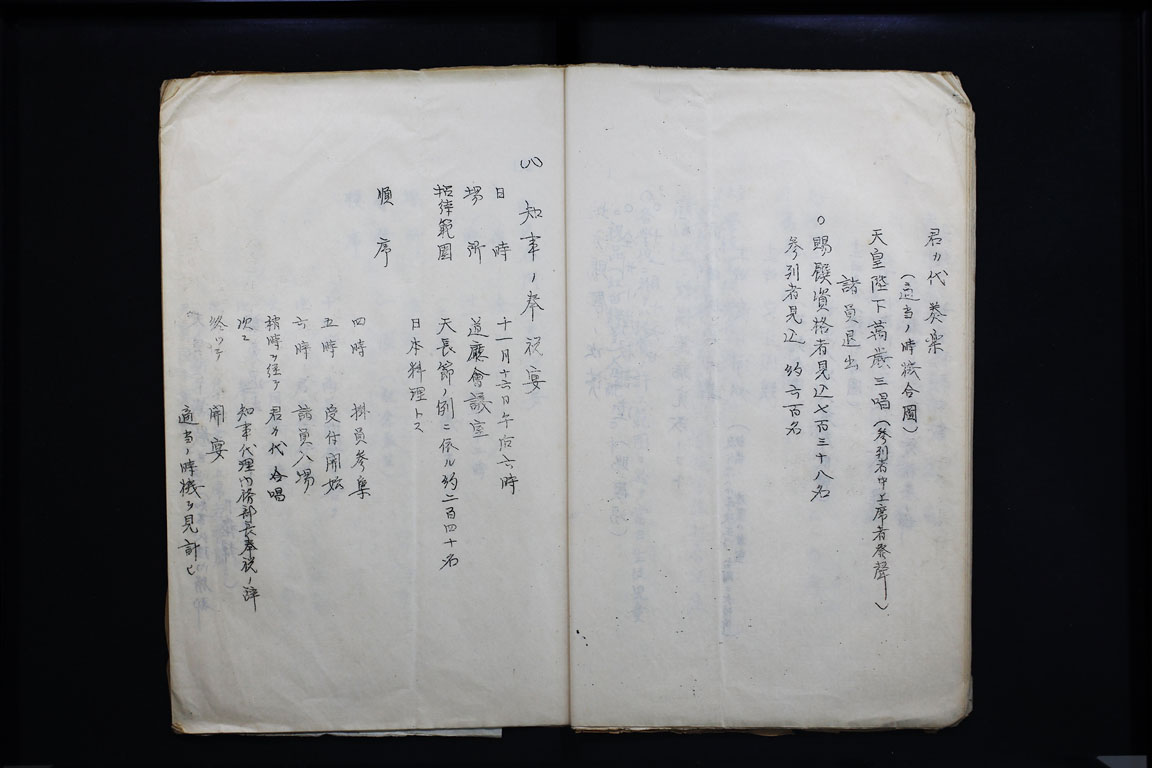 君ガ代奏楽
（適当ノ時機合図）
天皇陛下萬歳三唱（参列者中上席者発聲）
諸員退出
○賜饌資格者見込七百三十八名
参列者見込約六百名
(八)知事ノ奉祝宴
日時 十一月十六日午后六時
場所 道廳會議室
招待範囲 天長節ノ例ニ依ル約二百四十名
日本料理トス
順序 四時 掛員参集
五時 受付開始
六時 諸員入場
稍時ヲ経テ 君ガ代合唱
次ニ 知事代理内務部長奉祝ノ辞
終ツテ 開宴
適当ノ時機ヲ見計ヒ